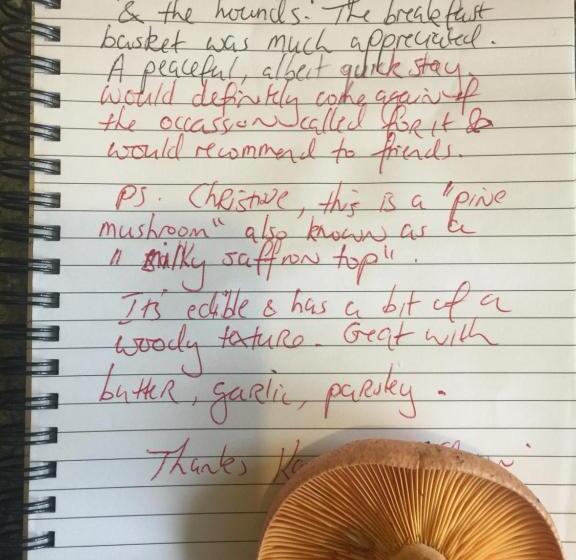 & the hounds. The breakfast
basket was much appreciated.
A peaceful, albeit quick stay.
would definitely come again if
the occassion called for it &
would recommend to friends.
PS. Christine, this is a "pine
mushroom" also known as a
" milky saffron top".
It's edible & has a bit of a
woody texture. Great with
butter, garlic, parsley.
Thanks